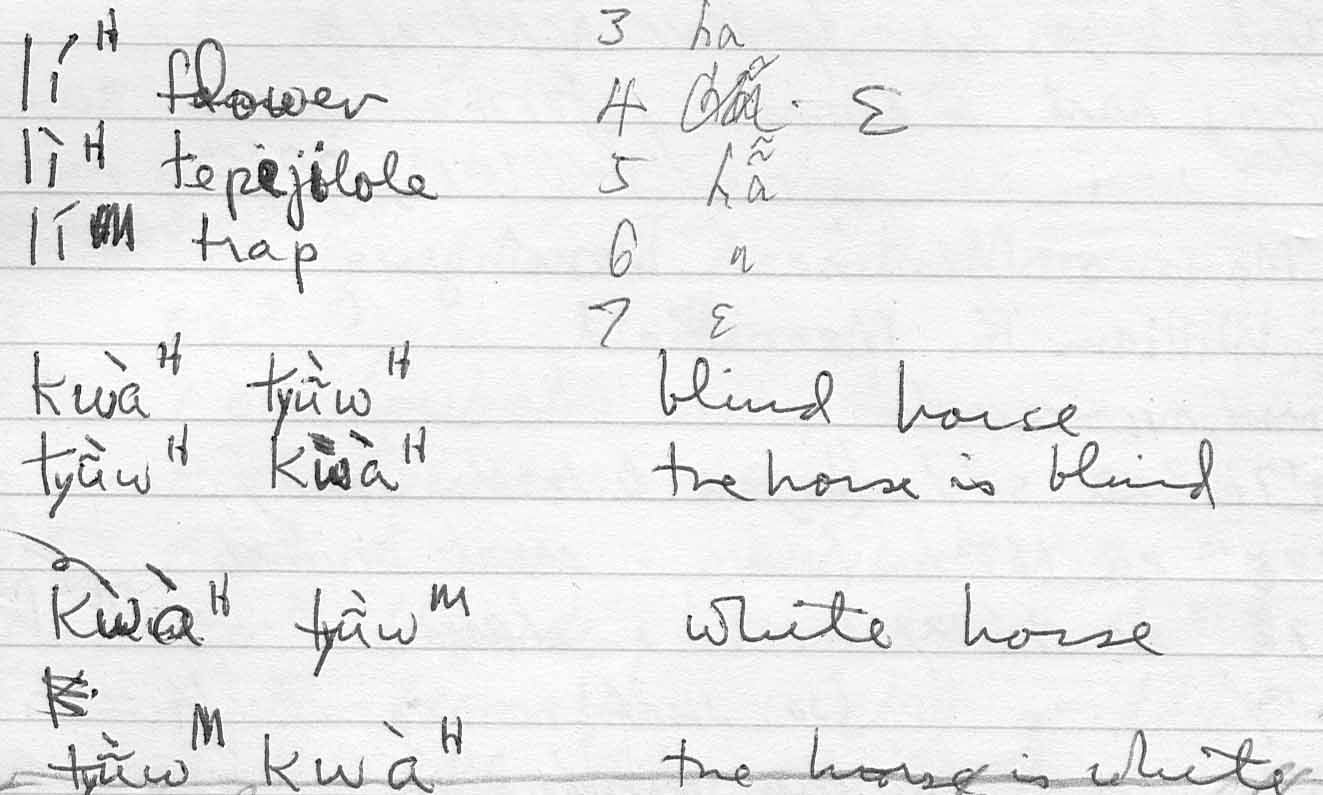 3 ha
lí ᴴ flower
4 ε
lì ᴴ tepejilole
5 hã
lí ᴹ trap
6 a
7 ε
kwà ᴴ tyù̃w ᴴ blind horse
tyù̃w ᴴ kwà ᴴ the horse is blind
kwà ᴴ tyù̃w ᴹ white horse
tyù̃w ᴹ kwà ᴴ the horse is white